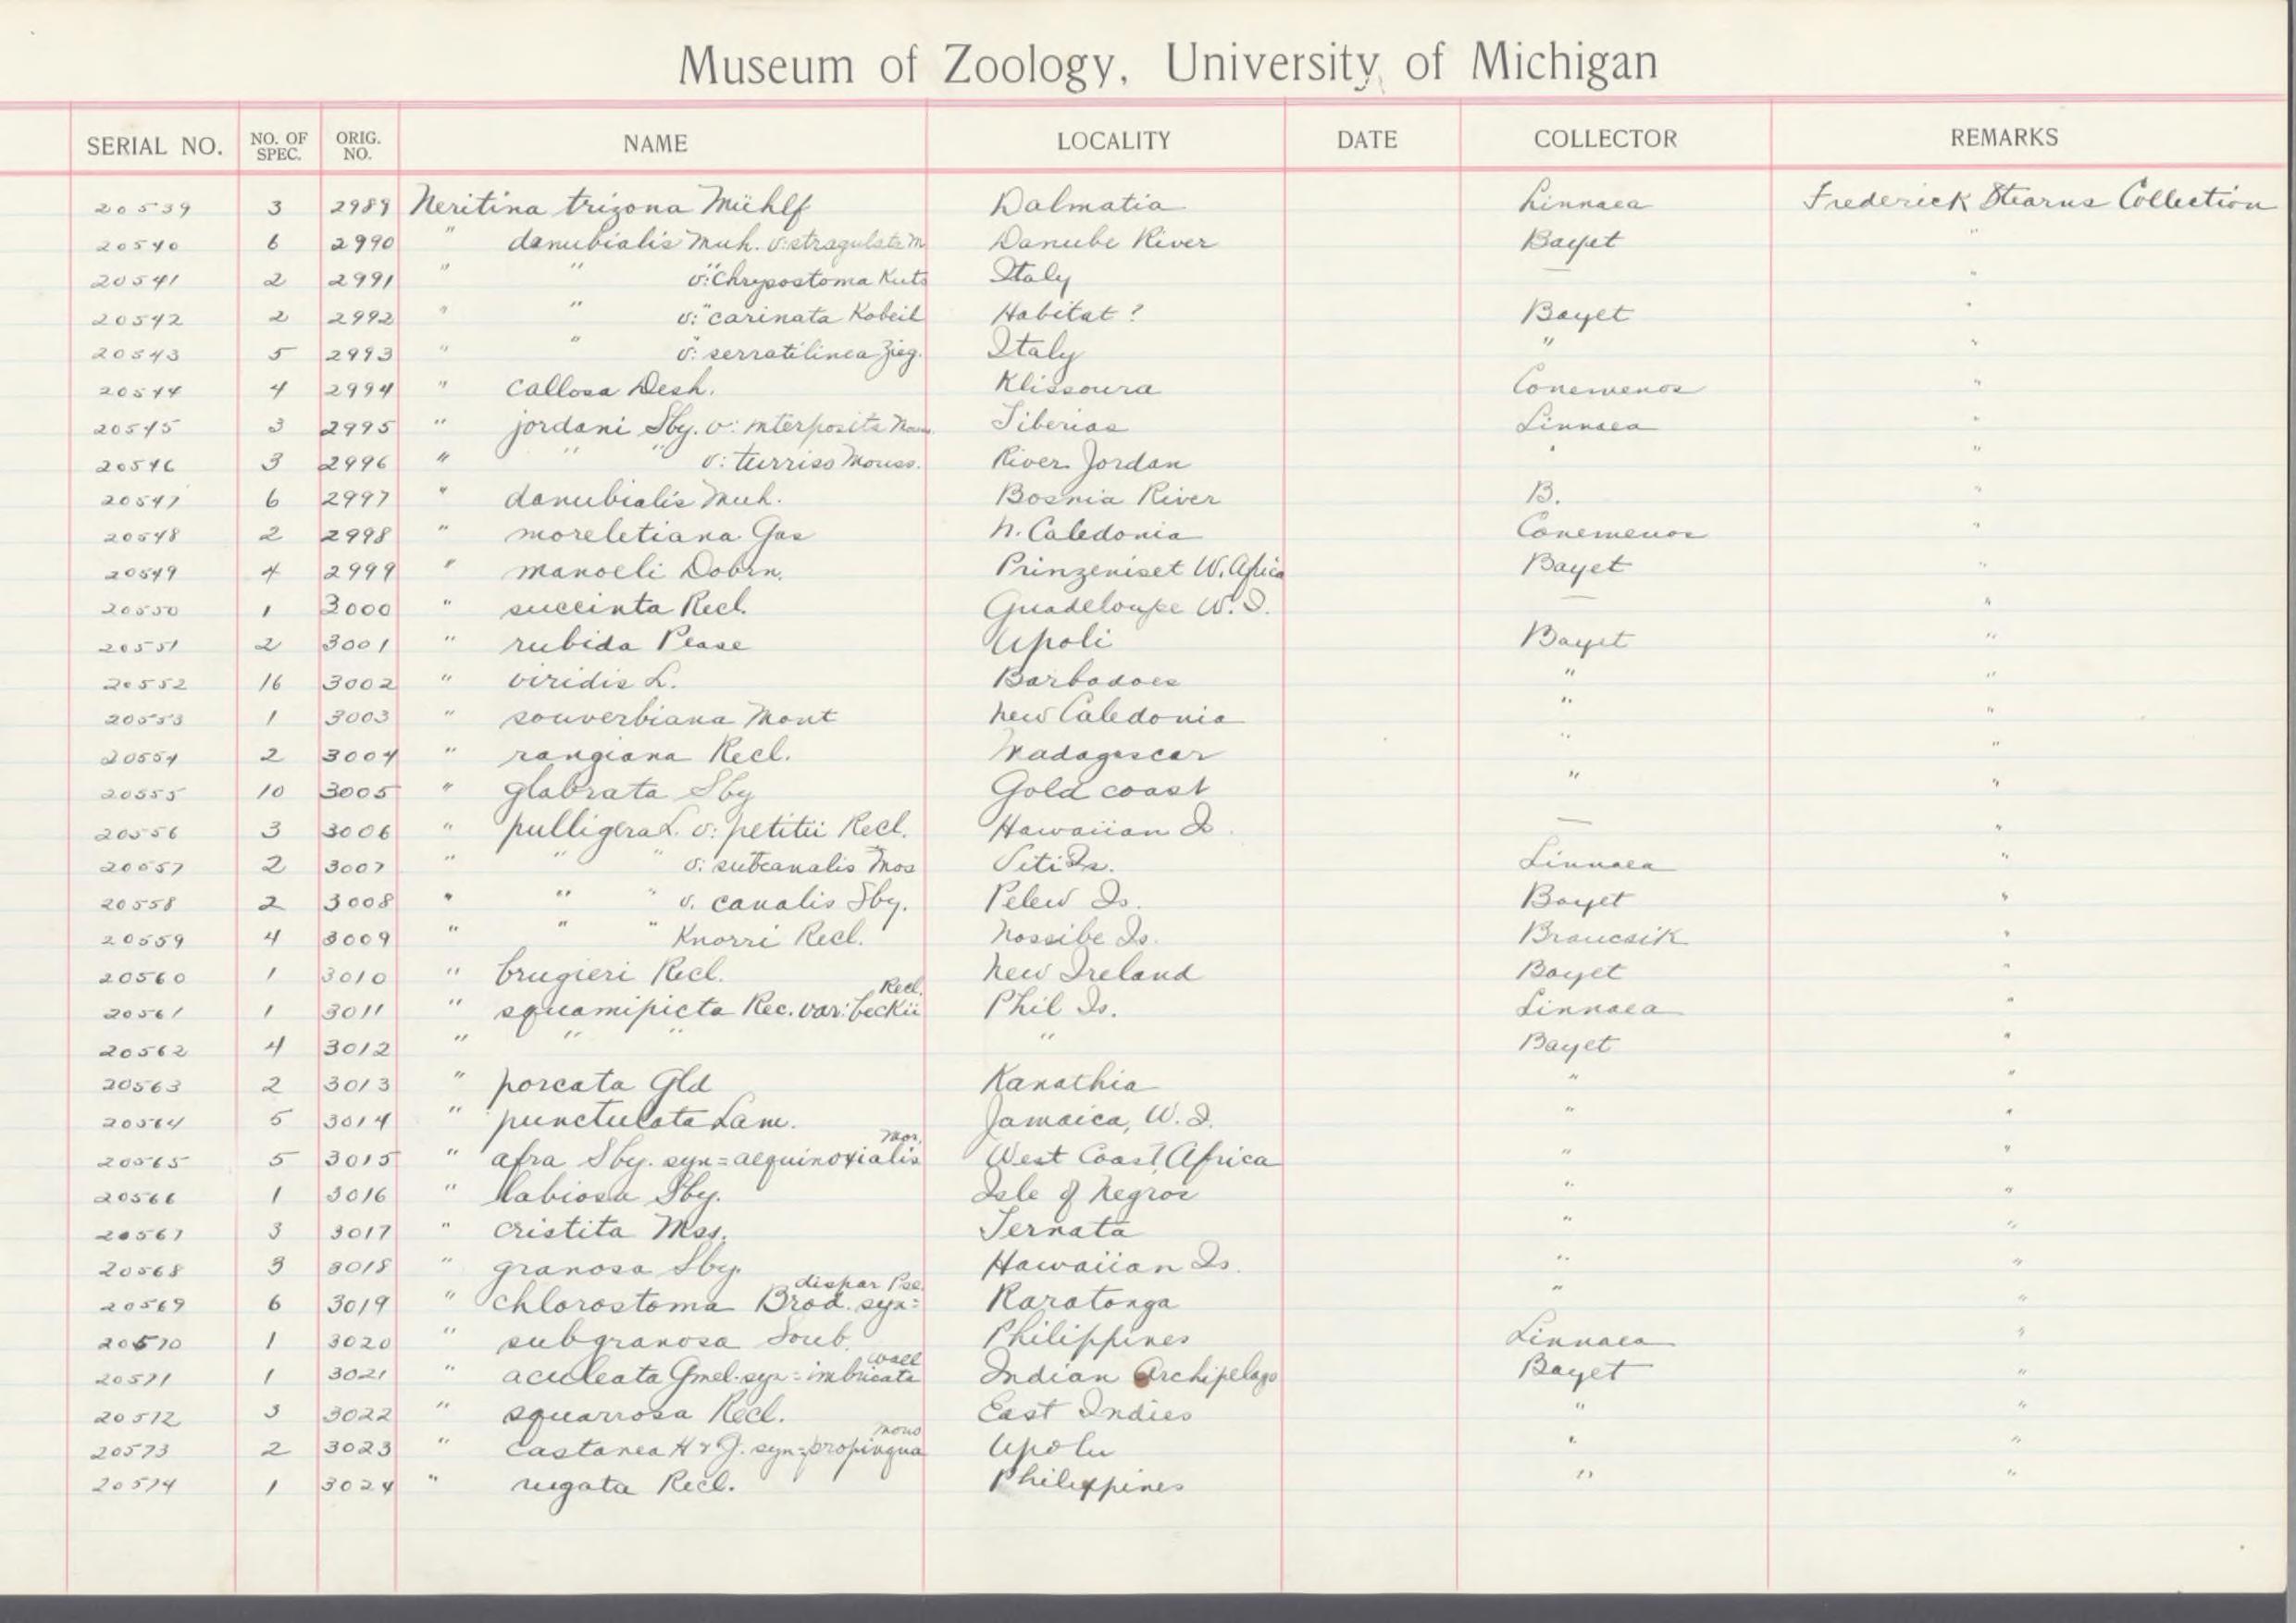 Museum of Zoology, University of Michigan
SERIAL NO. NO. OF SPEC. ORIG. NO. NAME LOCALITY DATE COLLECTOR REMARKS
20539 3 2989 Neritina trizona Mühlf Dalmatia Linnaea Frederick Stearns Collection
20540 6 2990 " danubialis Muh. v: stragulata M Danube River Bayet "
20541 2 2991 " " v: "Chrysostoma Kuts Italy — "
20542 2 2992 " " v: "carinata Kobeil Habitat ? Bayet "
20543 5 2993 " " v: "serratilinea Zieg. Italy " "
20544 4 2994 " callosa Desh. Klissoura Conemenos "
20545 3 2995 " jordani Sby. v: interposita Tiberias Linnaea "
20546 3 2996 " " " v: turriso Mouss. River Jordan " "
20547 6 2997 " danubialis Muh. Bosnia River B. "
20548 2 2998 " moreletiana Gas N. Caledonia Conemenos "
20549 4 2999 " manoeli Dohrn. Prinzeniset W. Africa Bayet "
20550 1 3000 " succinta Recl. Guadeloupe W. I. — "
20551 2 3001 " rubida Pease Upoli Bayet "
20552 16 3002 " viridis L. Barbadoes " "
20553 1 3003 " souverbiana Mont New Caledonia " "
20554 2 3004 " rangiana Recl. Madagascar " "
20555 10 3005 " glabrata Sby Gold coast " "
20556 3 3006 " pulligera L. v: petitii Recl. Hawaiian Is. — "
20557 2 3007 " " " v: subcanalis Mos Viti Is. Linnaea "
20558 2 3008 " " " v. canalis Sby. Pelew Is. Bayet "
20559 4 3009 " " " Knorri Recl. Nossibe Is. Brancsik "
20560 1 3010 " brugieri Recl. New Ireland Bayet "
20561 1 3011 " squamipicta Rec. var: beckii Recl. Phil Is. Linnaea "
20562 4 3012 " " " " Bayet "
20563 2 3013 " porcata Gld Kanathia " "
20564 5 3014 " punctulata Lam. Jamaica, W. I. " "
20565 5 3015 " afra Sby. syn = aequinoxialis Mor. West Coast Africa " "
20566 1 3016 " labiosa Sby. Isle of Negros " "
20567 3 3017 " cristita Mss. Ternata " "
20568 3 3018 " granosa Sby. Hawaiian Is. " "
20569 6 3019 " chlorostoma Brod. syn = dispar Pse. Raratonga " "
20570 1 3020 " subgranosa Soub. Philippines Linnaea "
20571 1 3021 " aculeata Gmel. syn = imbricata Wall Indian Archipelago Bayet "
20572 3 3022 " squarrosa Recl. East Indies " "
20573 2 3023 " castanea H & J. syn = propinqua Mous Upolu " "
20574 1 3024 " rugata Recl. Philippines " "